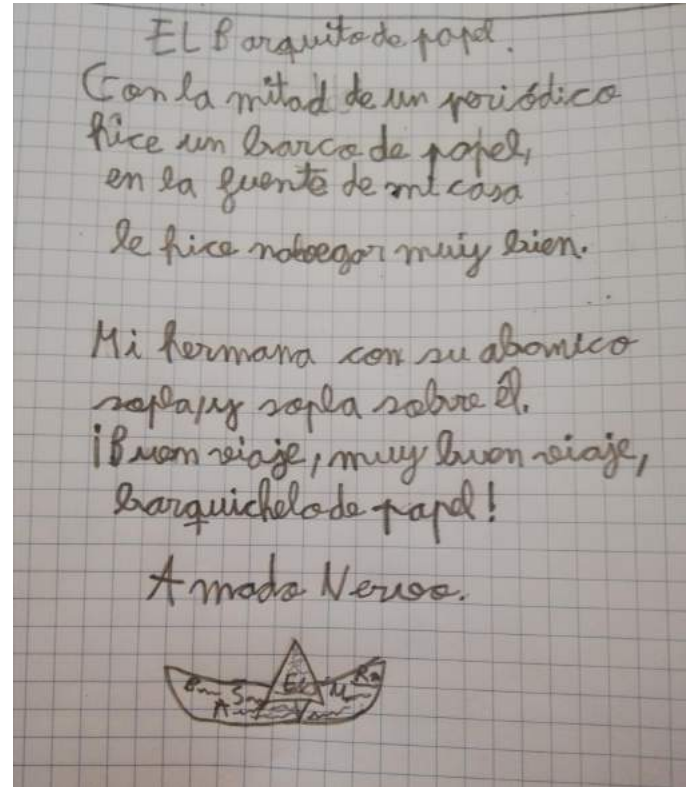 EL Barquito de papel.
Con la mitad de un periódico
hice un barco de papel,
en la fuente de mi casa
le hice navegar muiy bien.
Mi hermana con su abanico
sopla, y sopla sobre él.
¡Buen viaje, muy buen viaje,
barquichelo de papel!
Amado Nervo.
El